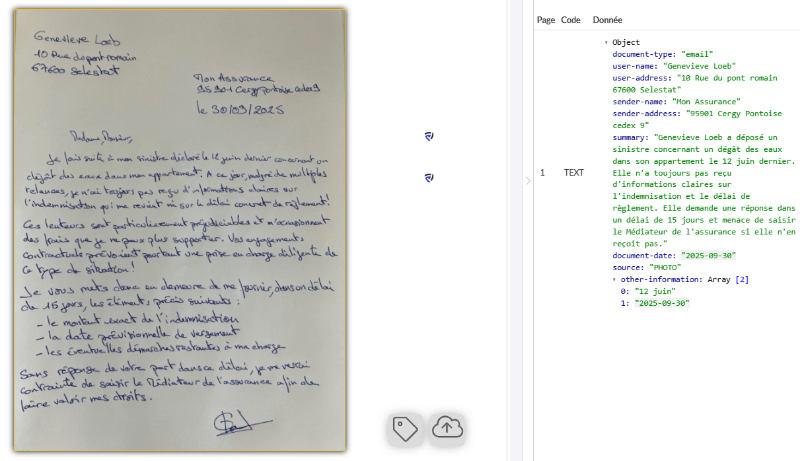 Genevieve Loeb
10 Rue du pont romain
67600 Selestat
Mon Assurance
95 901 Cergy Pontoise cedex 9
le 30/09/2025
Madame, Monsieur,
Je fais suite à mon sinistre déclaré le 12 juin dernier concernant un
dégât des eaux dans mon appartement. A ce jour, malgré de multiples
relances, je n'ai toujours pas reçu d'informations claires sur
l'indemnisation qui me revient ni sur le délai concret de règlement!
Ces lenteurs sont particulièrement préjudiciables et m'occasionnent
des frais que je ne peux plus supporter. Vos engagements
contractuels prévoient pourtant une prise en charge diligente de
ce type de situation!
Je vous mets donc en demeure de me fournir, dans un délai
de 15 jours, les éléments précis suivants :
- le montant exact de l'indemnisation
- la date prévisionnelle de versement
- les éventuelles démarches restantes à ma charge
Sans réponse de votre part dans ce délai, je me verrai
contrainte de saisir le Médiateur de l'assurance afin de
faire valoir mes droits.
Page Code Donnée
1 TEXT
Object
document-type: "email"
user-name: "Genevieve Loeb"
user-address: "10 Rue du pont romain
67600 Selestat"
sender-name: "Mon Assurance"
sender-address: "95901 Cergy Pontoise
cedex 9"
summary: "Genevieve Loeb a déposé un
sinistre concernant un dégât des eaux
dans son appartement le 12 juin dernier.
Elle n'a toujours pas reçu
d'informations claires sur
l'indemnisation et le délai de
règlement. Elle demande une réponse dans
un délai de 15 jours et menace de saisir
le Médiateur de l'assurance si elle n'en
reçoit pas."
document-date: "2025-09-30"
source: "PHOTO"
other-information: Array [2]
0: "12 juin"
1: "2025-09-30"